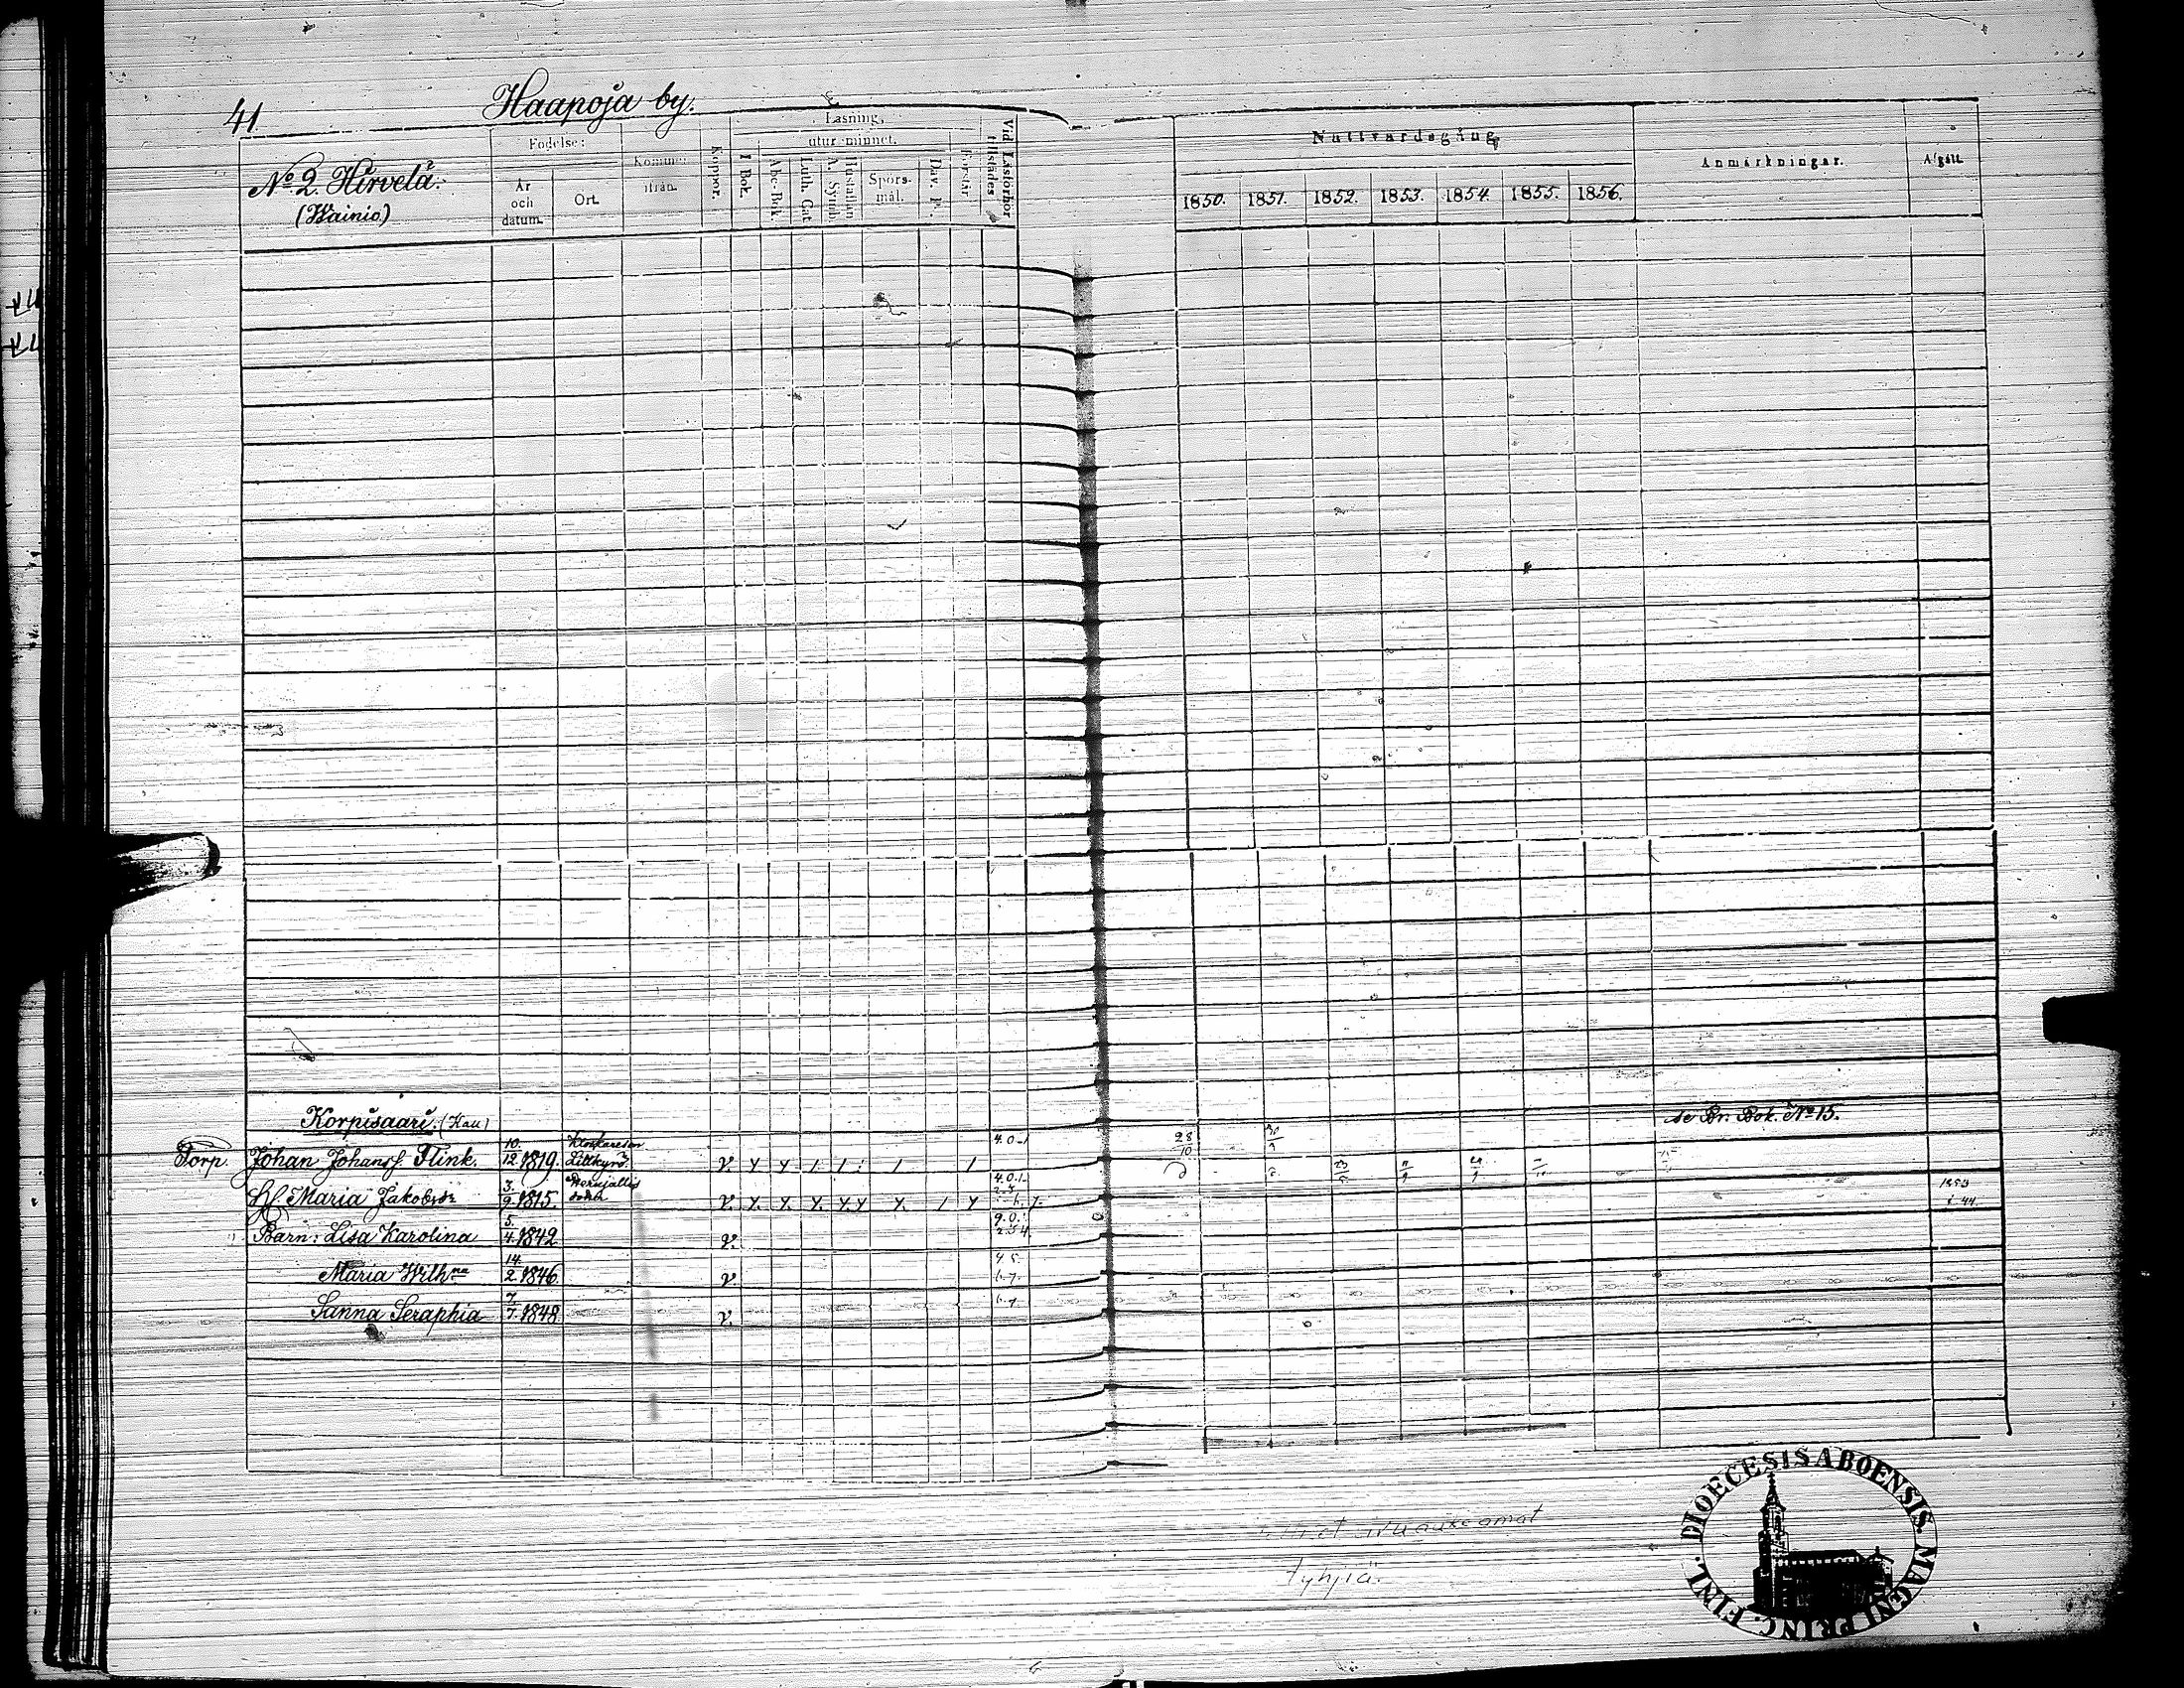 41. Haapoja by.
No 2. Hirvelä.
(Wainio)
Födelse:
År och datum.
Ort.
Kommen ifrån.
Koppor.
Läsning,
utur minnet.
I Bok.
Abc-Bok.
Luth. Cat.
Hustaflan A. Symb.
Spörs-mål.
Dav. P.
Förstår.
Vid Läsförhör tillstädes
Nattvardsgång
1850. 1851. 1852. 1853. 1854. 1855. 1856.
Anmärkningar.
Afgått.
Korpisaari. (Kau) se Br. Bok. No 15.
Torp. Johan Johanss. Flink. 10/12 1819. Lillkyro v. 4.0.1 28/10
H. Maria Jakobsdr 3/9 1815. v. 4.0.1. 1853 i. 44.
Barn: Lisa Karolina 5/4 1842 v. 9.0.
Maria Wilhna 14/2 1846. v. 4.5. 6.7.
Sanna Seraphia 7/7 1848 v. 6.7
tyhjiä.
DIOECESIS ABOENSIS. MAGNI PRINC. FINL.